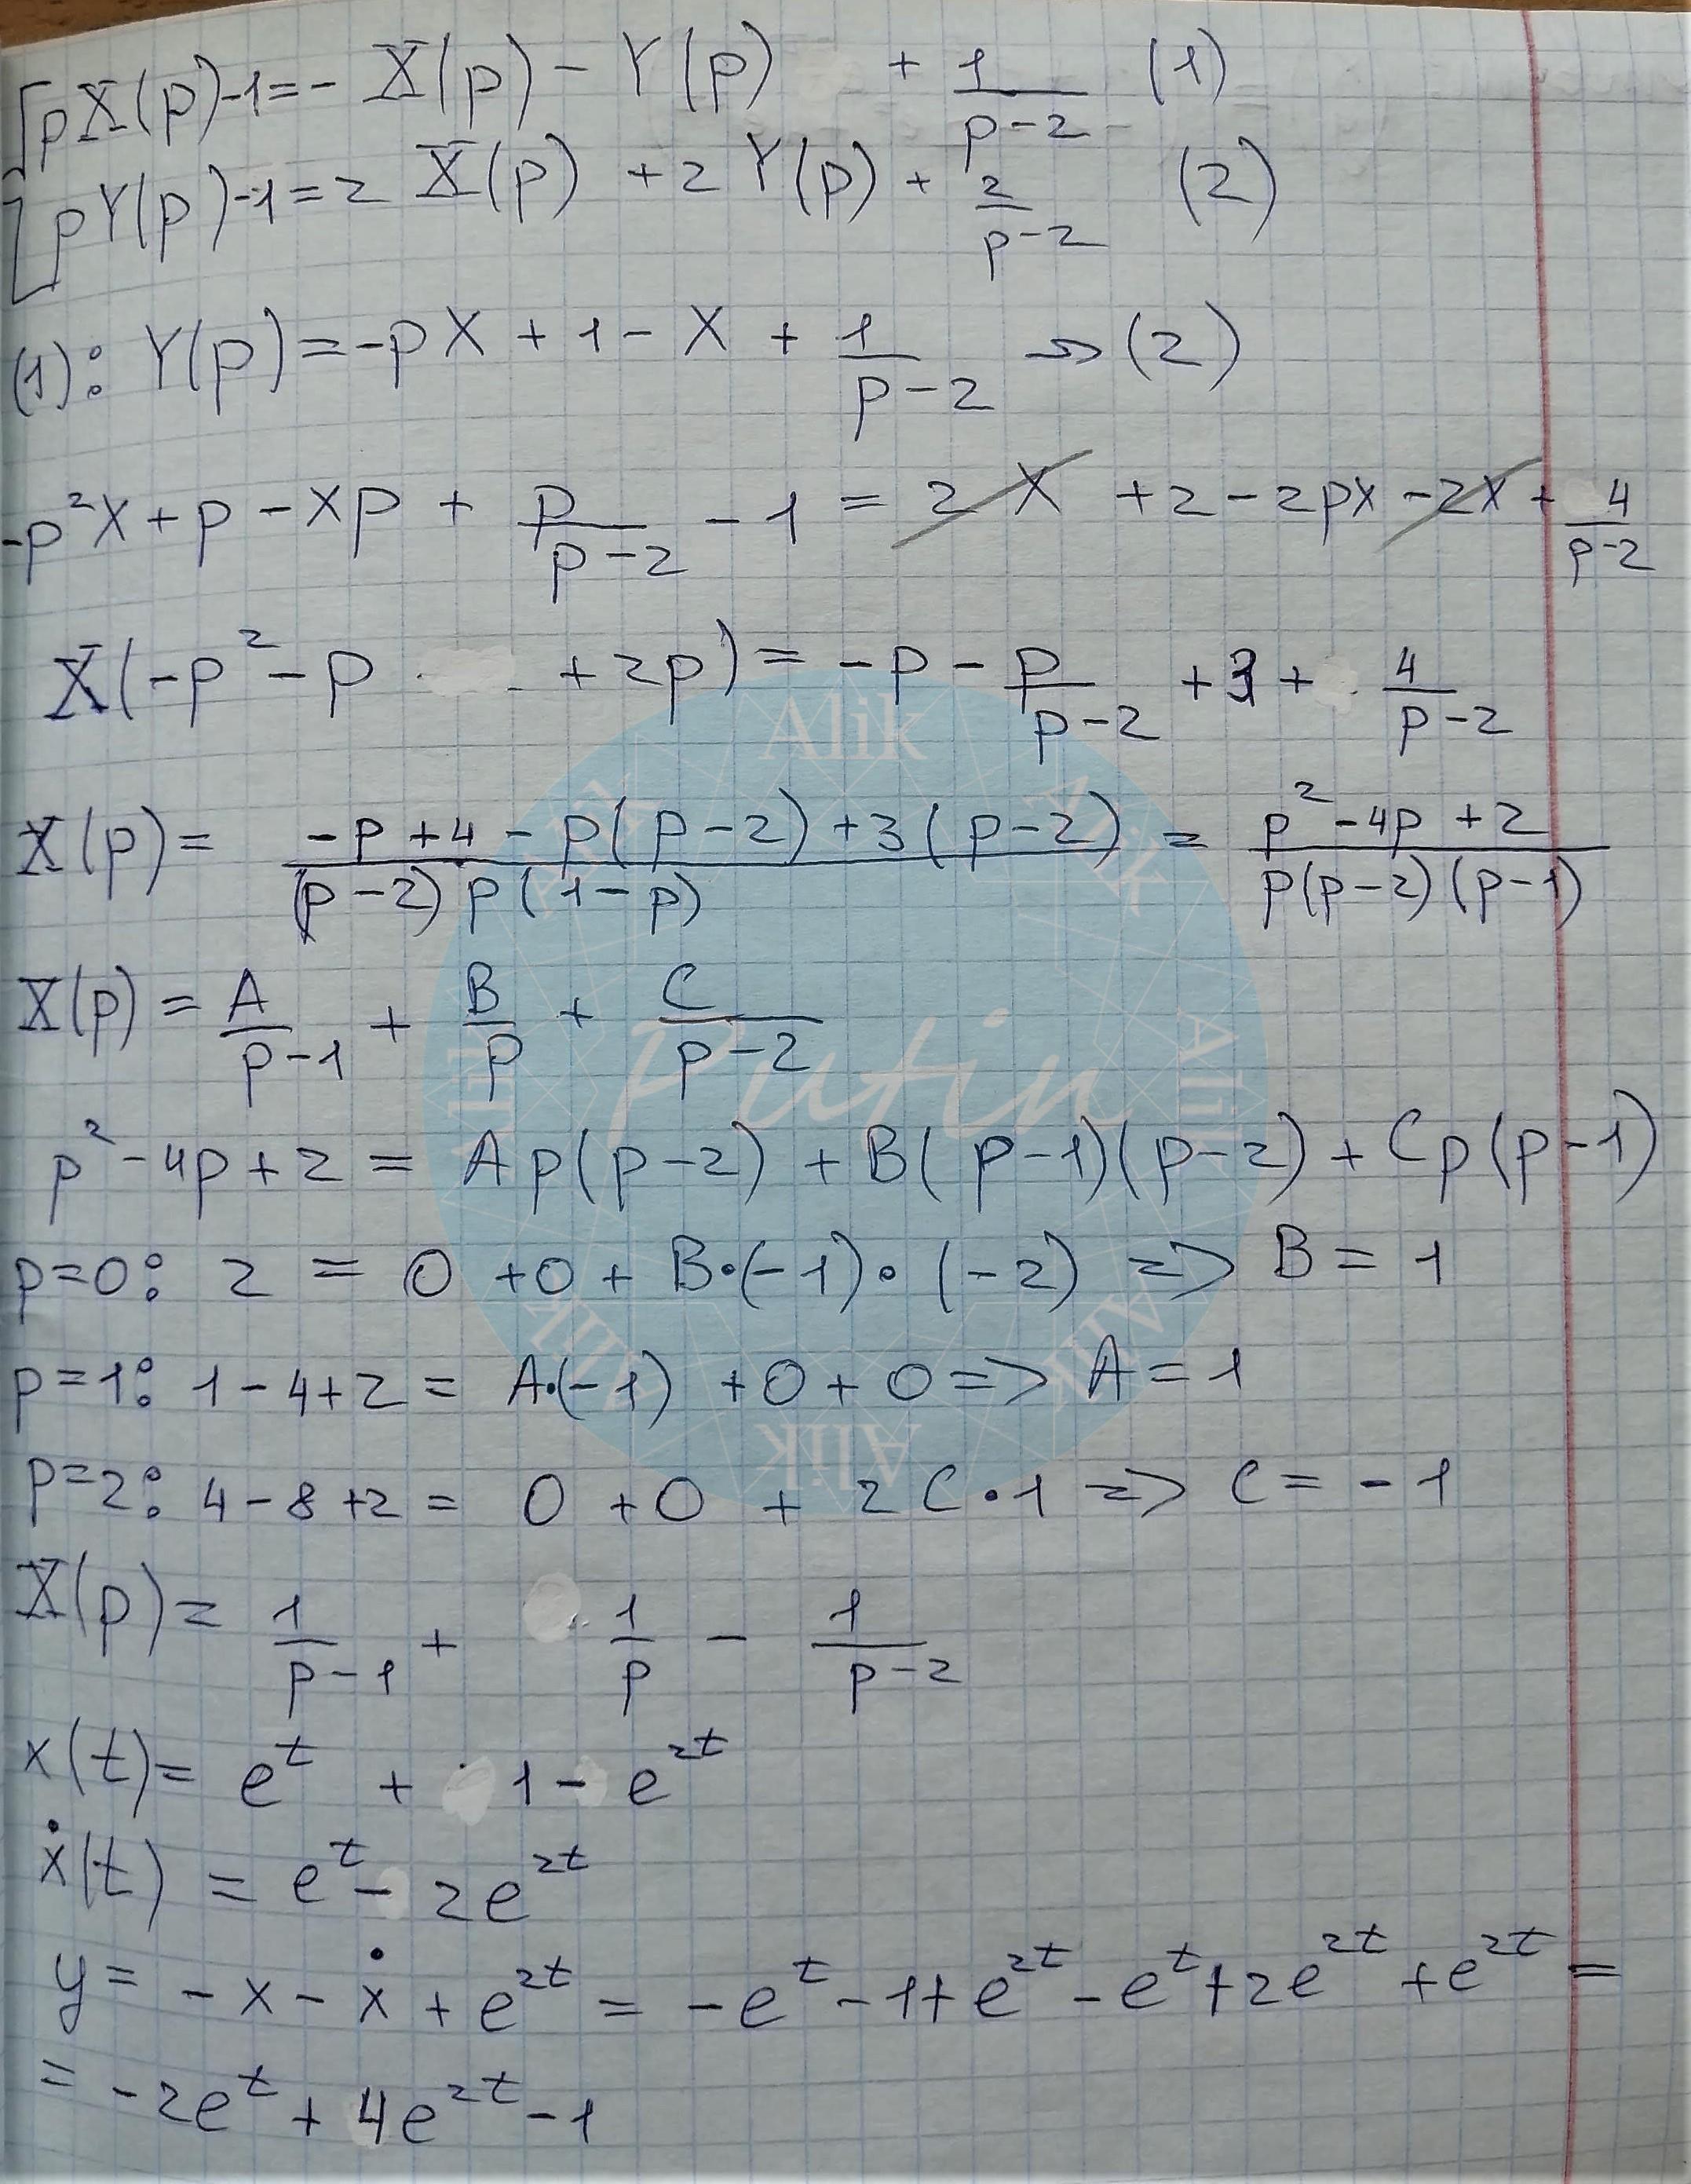 pX(p)-1=- X(p) - Y(p) + 1/(p-2) (1)
pY(p)-1=2 X(p) +2 Y(p) + 2/(p-2) (2)
(1): Y(p)=-pX+1-X + 1/(p-2) => (2)
-p²X+p-Xp + p/(p-2) - 1 = 2X +2-2pX-2X+ 4/(p-2)
X(-p²-p +2p) = -p - p/(p-2) +3+ 4/(p-2)
X(p)= (-p+4-p(p-2)+3(p-2))/((p-2)p(1-p)) = (p²-4p+2)/(p(p-2)(p-1))
X(p) = A/(p-1) + B/p + C/(p-2)
p²-4p+2 = Ap(p-2) +B(p-1)(p-2)+Cp(p-1)
p=0: 2 = 0 +0+ B·(-1)·(-2) => B=1
p=1: 1-4+2= A·(-1) +0+0=> A=1
p=2: 4-8+2= 0+0 + 2C·1 => C=-1
X(p)= 1/(p-1) + 1/p - 1/(p-2)
x(t)= e^t + 1- e^2t
ẋ(t) = e^t - 2e^2t
y= -x-ẋ+e^2t = -e^t-1+e^2t-e^t+2e^2t+e^2t =
= -2e^t+4e^2t-1
Alik
Alik
Alik
Alik
Alik
Alik
Alik
Alik
Putin